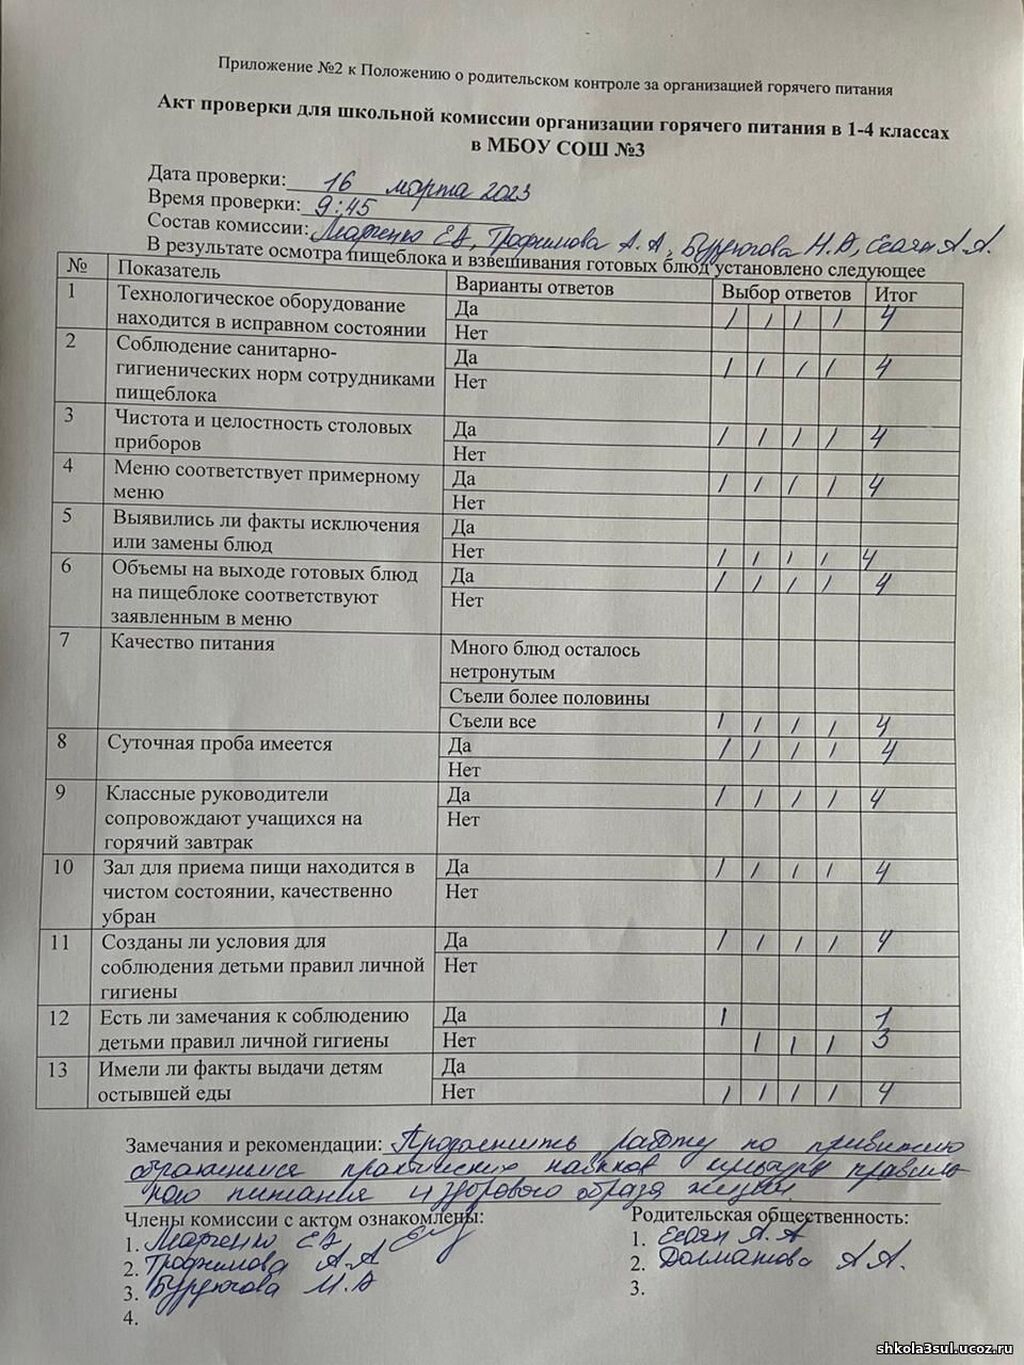 Приложение №2 к Положению о родительском контроле за организацией горячего питания
Акт проверки для школьной комиссии организации горячего питания в 1-4 классах
в МБОУ СОШ №3
Дата проверки: 16 марта 2023
Время проверки: 9:45
Состав комиссии: Марченко Е А, Трофимова А. А, Бурдюгова М. А, Есаян А. А.
В результате осмотра пищеблока и взвешивания готовых блюд установлено следующее
№ Показатель Варианты ответов Выбор ответов Итог
1 Технологическое оборудование Да / / / / 4
находится в исправном состоянии Нет
2 Соблюдение санитарно- Да / / / / 4
гигиенических норм сотрудниками Нет
пищеблока
3 Чистота и целостность столовых Да / / / / 4
приборов Нет
4 Меню соответствует примерному Да / / / / 4
меню Нет
5 Выявились ли факты исключения Да
или замены блюд Нет / / / / 4
6 Объемы на выходе готовых блюд Да / / / / 4
на пищеблоке соответствуют Нет
заявленным в меню
7 Качество питания Много блюд осталось
нетронутым
Съели более половины
Съели все / / / / 4
8 Суточная проба имеется Да / / / / 4
Нет
9 Классные руководители Да / / / / 4
сопровождают учащихся на Нет
горячий завтрак
10 Зал для приема пищи находится в Да / / / / 4
чистом состоянии, качественно Нет
убран
11 Созданы ли условия для Да / / / / 4
соблюдения детьми правил личной Нет
гигиены
12 Есть ли замечания к соблюдению Да / 1
детьми правил личной гигиены Нет / / / 3
13 Имели ли факты выдачи детям Да
остывшей еды Нет / / / / 4
Замечания и рекомендации: Продолжить работу по привитию
практических навыков культуры правиль
ного питания и здорового образа жизни.
Члены комиссии с актом ознакомлены: Родительская общественность:
1. Марченко Е А 1. Есаян А. А
2. Трофимова А А 2. Долматова А А.
3. Бурдюгова М. А 3.
4.
shkola3sul.ucoz.ru